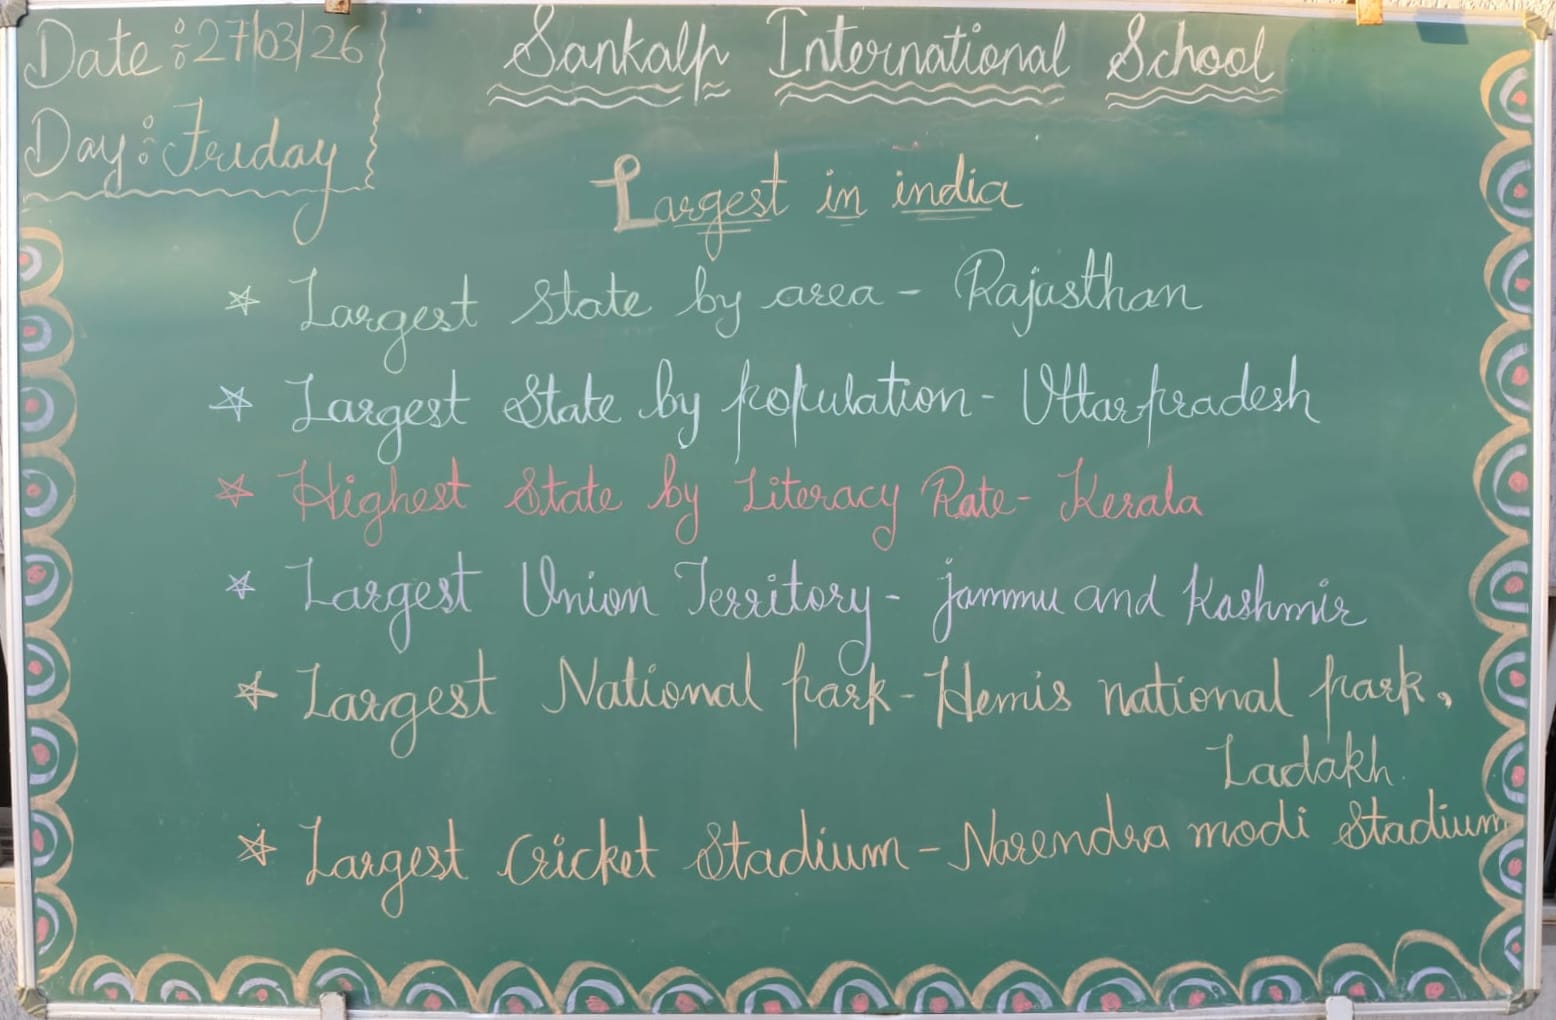 Date : 27/03/26
Day : Friday
Sankalp International School
Largest in india
Largest State by area - Rajasthan
Largest State by population - Uttarpradesh
Highest State by Literacy Rate - Kerala
Largest Union Territory - jammu and Kashmir
Largest National park - Hemis national park,
Ladakh
Largest Cricket Stadium - Narendra modi Stadium